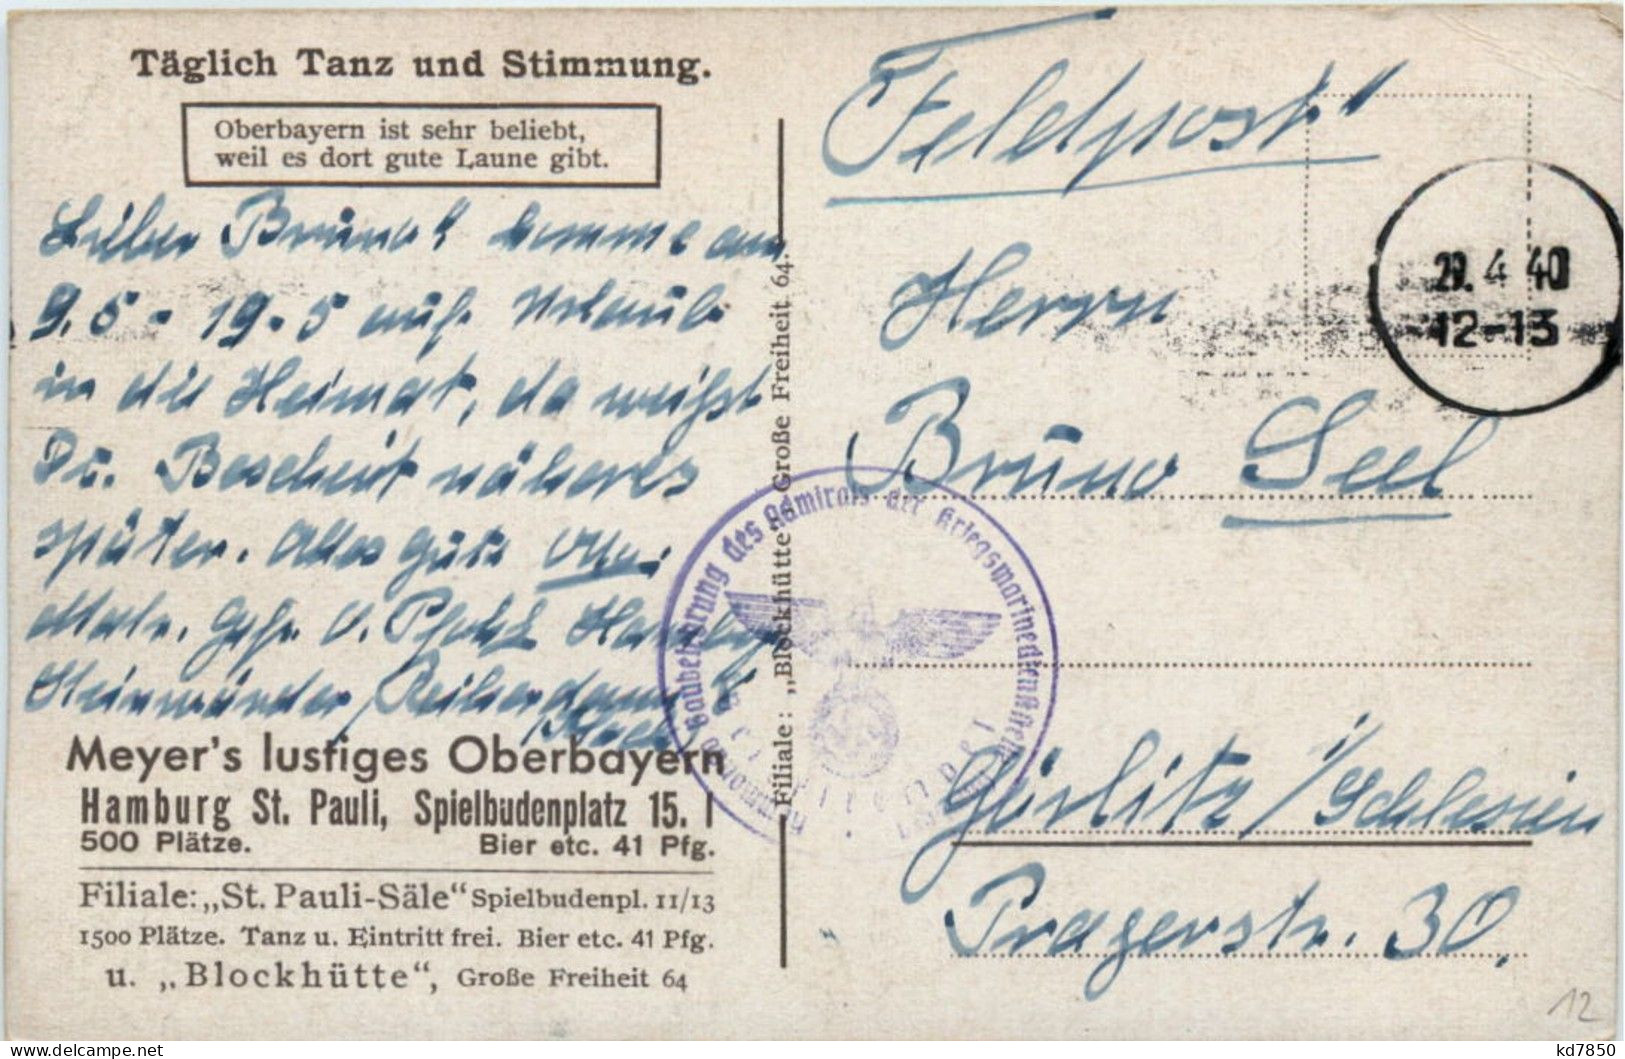 Täglich Tanz und Stimmung.
Oberbayern ist sehr beliebt,
weil es dort gute Laune gibt.
Lieber Bruno! komme am
9.5 - 19.5 auf Urlaub
in die Heimat, da weißt
Du Bescheit näheres
später. Alles Gute
Matr. Gefr. Hamburg
Meyer's lustiges Oberbayern
Hamburg St. Pauli, Spielbudenplatz 15. I
500 Plätze. Bier etc. 41 Pfg.
Filiale: „St. Pauli-Säle" Spielbudenpl. 11/13
1500 Plätze. Tanz u. Eintritt frei. Bier etc. 41 Pfg.
u. „Blockhütte", Große Freiheit 64
Filiale: „Blockhütte" Große Freiheit 64.
Feldpost"
29. 4 40
12-13
Herrn
Bruno Seel
des Admirals der Kriegsmarinedienststelle
Görlitz / Schlesien
Pragerstr. 30.
12
kd7850